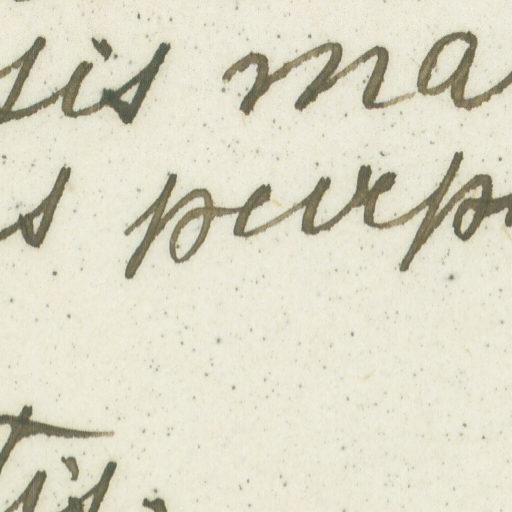 sis ma
s purp
tis